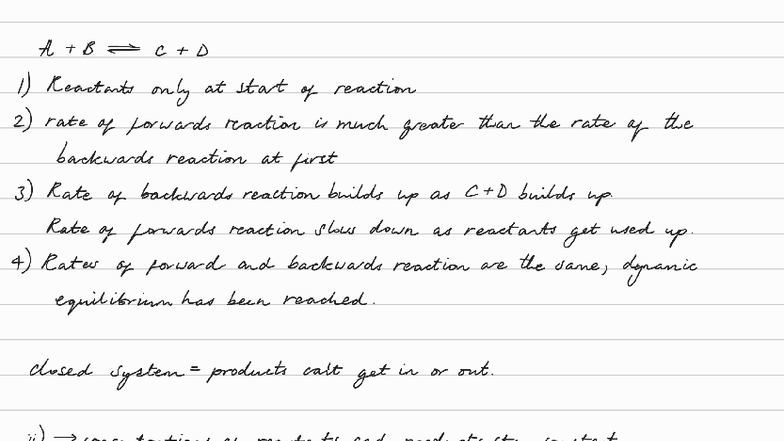 A + B ⇌ C + D
1) Reactants only at start of reaction
2) rate of forwards reaction is much greater than the rate of the
backwards reaction at first
3) Rate of backwards reaction builds up as C+D builds up.
Rate of forwards reaction slows down as reactants get used up.
4) Rates of forward and backwards reaction are the same, dynamic
equilibrium has been reached.
closed system = products can't get in or out.
ii) →